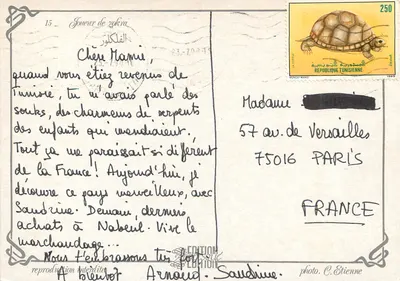 15 _ Joueur de zokra
الفلكلور
250
REPUBLIQUE TUNISIENNE
Chère Mamie,
quand vous étiez revenus de
Tunisie, tu m'avais parlé des
souks, des charmeurs de serpents
des enfants qui mendiaient.
Tout ça me paraissait si différent
de la France! Aujourd'hui, je
découvre ce pays merveilleux, avec
Sandrine. Demain, derniers
achats à Nabeul. Vive le
marchandage...
Nous t'embrassons très fort.
A bientôt Arnaud. Sandrine.
Madame
57 av. de Versailles
75016 PARIS
FRANCE
EDITION
reproduction interdite
photo. C. Etienne